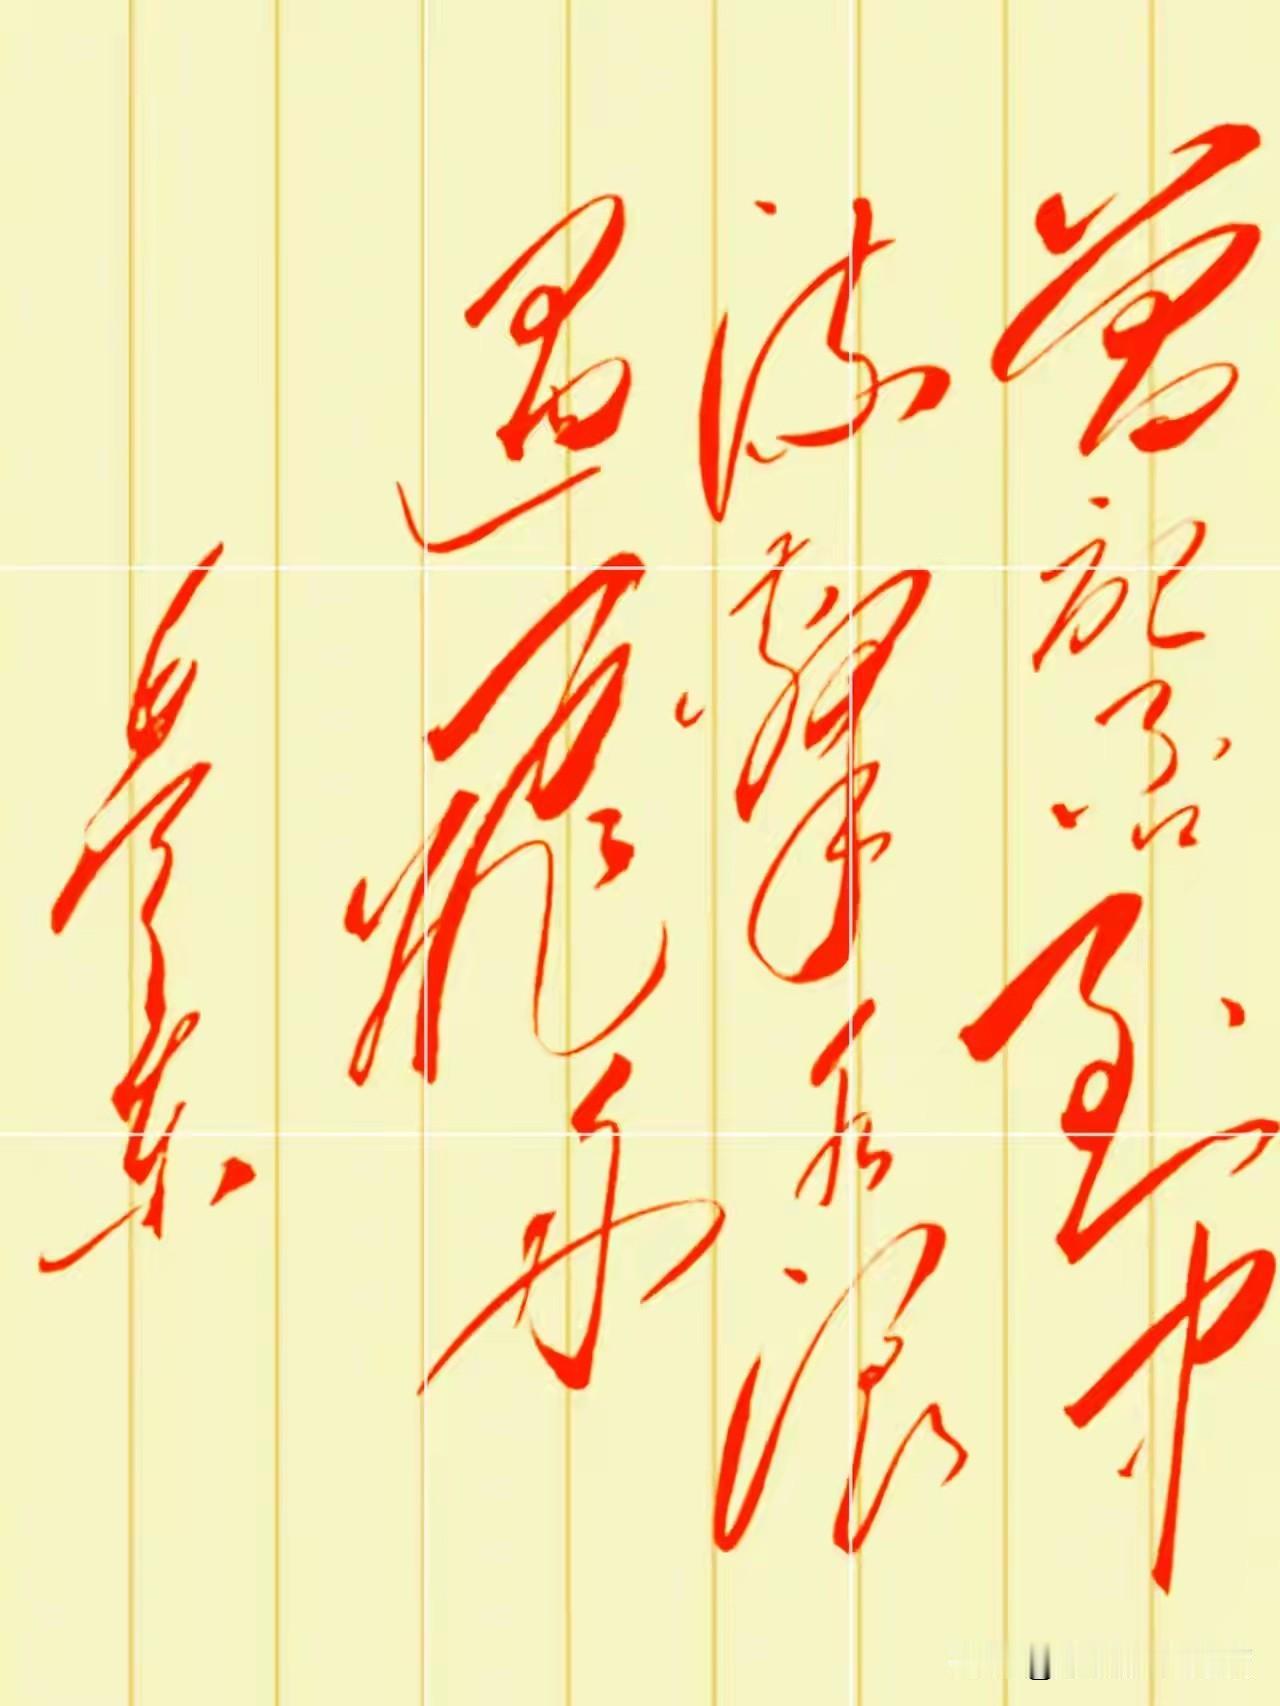 曾记否到中
流击水浪
遏飞舟